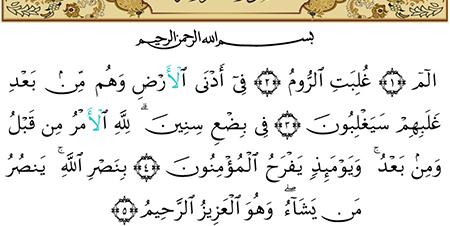 بسم الله الرحمن الرحيم
الٓمٓ ﴿١﴾ غُلِبَتِ ٱلرُّومُ ﴿٢﴾ فِىٓ أَدْنَى ٱلْأَرْضِ وَهُم مِّنۢ بَعْدِ
غَلَبِهِمْ سَيَغْلِبُونَ ﴿٣﴾ فِى بِضْعِ سِنِينَ ۗ لِلَّهِ ٱلْأَمْرُ مِن قَبْلُ
وَمِنۢ بَعْدُ ۚ وَيَوْمَئِذٍ يَفْرَحُ ٱلْمُؤْمِنُونَ ﴿٤﴾ بِنَصْرِ ٱللَّهِ ۚ يَنصُرُ
مَن يَشَآءُ ۖ وَهُوَ ٱلْعَزِيزُ ٱلرَّحِيمُ ﴿٥﴾